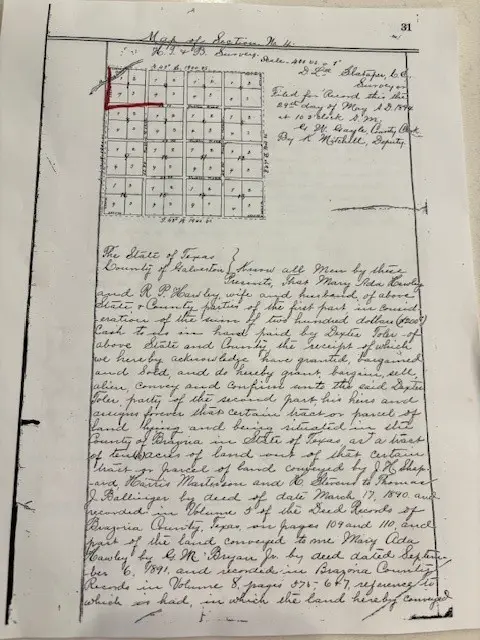 31
Map of Section No 4.
H. T. & B. Survey. Scale 400 vs = 1"
D Lee Slataper, C.E.
Surveyor
Filed for Record this the
29th day of May A.D. 1894
at 10 o'clock A.M.
G. W. Gayle, County Clerk
By K Mitchell, Deputy.
The State of Texas
County of Galveston } Know all Men by these
Presents, That Mary Ada Hawley
and R. P. Hawley, wife and husband, of above
State & County, parties of the first part in consid
eration of the sum of two hundred dollars ($200)
Cash to us in hand paid by Dexter Toler of
above State and County the receipt of which
we hereby acknowledge have granted, bargained
and sold, and do hereby grant, bargain, sell,
alien, convey and confirm unto the said Dexter
Toler party of the second part, his heirs and
assigns forever that certain tract or parcel of
land lying and being situated in the
County of Brazoria in State of Texas, as a tract
of ten acres of land out of that certain
tract or parcel of land conveyed by J. H. Shep
ard Harris Masterson and Stevens to Thomas
J. Ballinger by deed of date March 17, 1890 and
recorded in Volume 5 of the Deed Records of
Brazoria County, Texas, on pages 109 and 110, and
part of the land conveyed to me Mary Ada
Hawley by G. M. Bryan Jr. by deed dated Septem
ber 6, 1891, and recorded in Brazoria County
Records in Volume 8, pages reference to
which is had, in which the land hereby conveyed